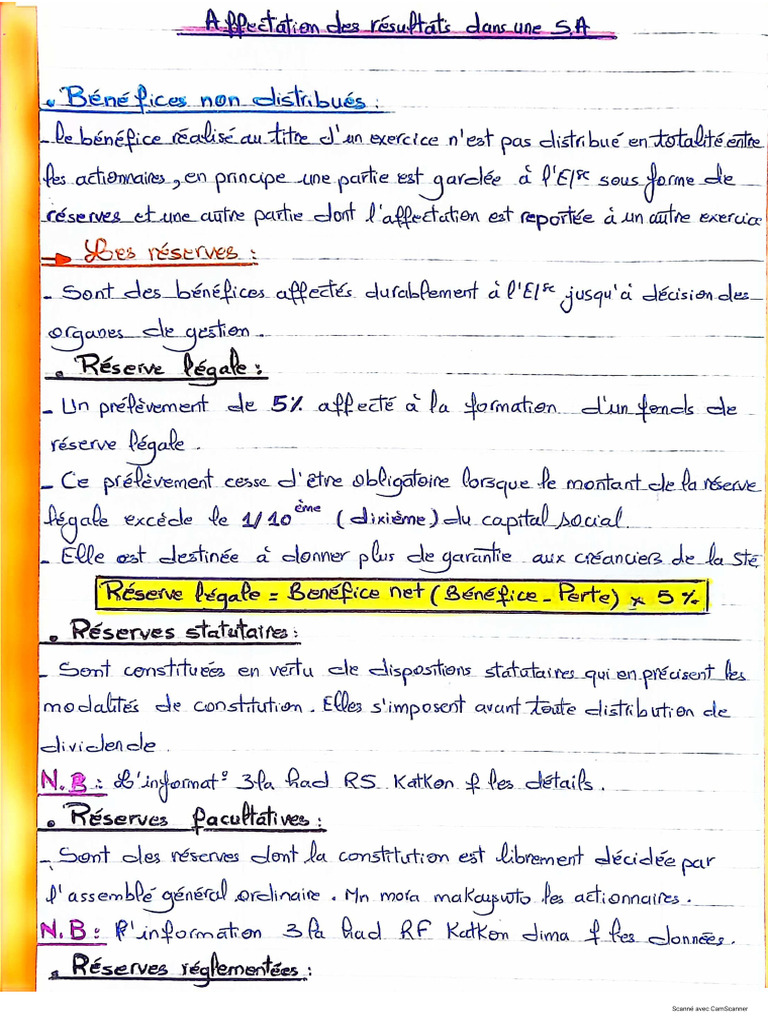 Affectation des résultats dans une S.A
. Bénéfices non distribués :
- le bénéfice réalisé au titre d'un exercice n'est pas distribué en totalité entre
les actionnaires, en principe une partie est gardée à l'E/se sous forme de
réserves et une autre partie dont l'affectation est reportée à un autre exercice
→ Les réserves :
- Sont des bénéfices affectés durablement à l'E/se jusqu'à décision des
organes de gestion.
. Réserve légale :
- Un prélèvement de 5% affecté à la formation d'un fonds de
réserve légale.
- Ce prélèvement cesse d'être obligatoire lorsque le montant de la réserve
légale excède le 1/10ème (dixième) du capital social
- Elle est destinée à donner plus de garantie aux créanciers de la sté
Réserve légale = Benéfice net (Bénéfice - Perte) x 5%
. Réserves statutaires :
- Sont constituées en vertu de dispostions statutaires qui en précisent les
modalités de constitution. Elles s'imposent avant toute distribution de
dividende.
N.B : L'informat° 3la had RS Katkon f les détails.
. Réserves facultatives :
- Sont des réserves dont la constitution est librement décidée par
l'assemblé général ordinaire. Mn mora makaywto les actionnaires.
N.B : l'information 3la had RF Katkon dima f les données.
. Réserves réglementées :
Scanné avec CamScanner